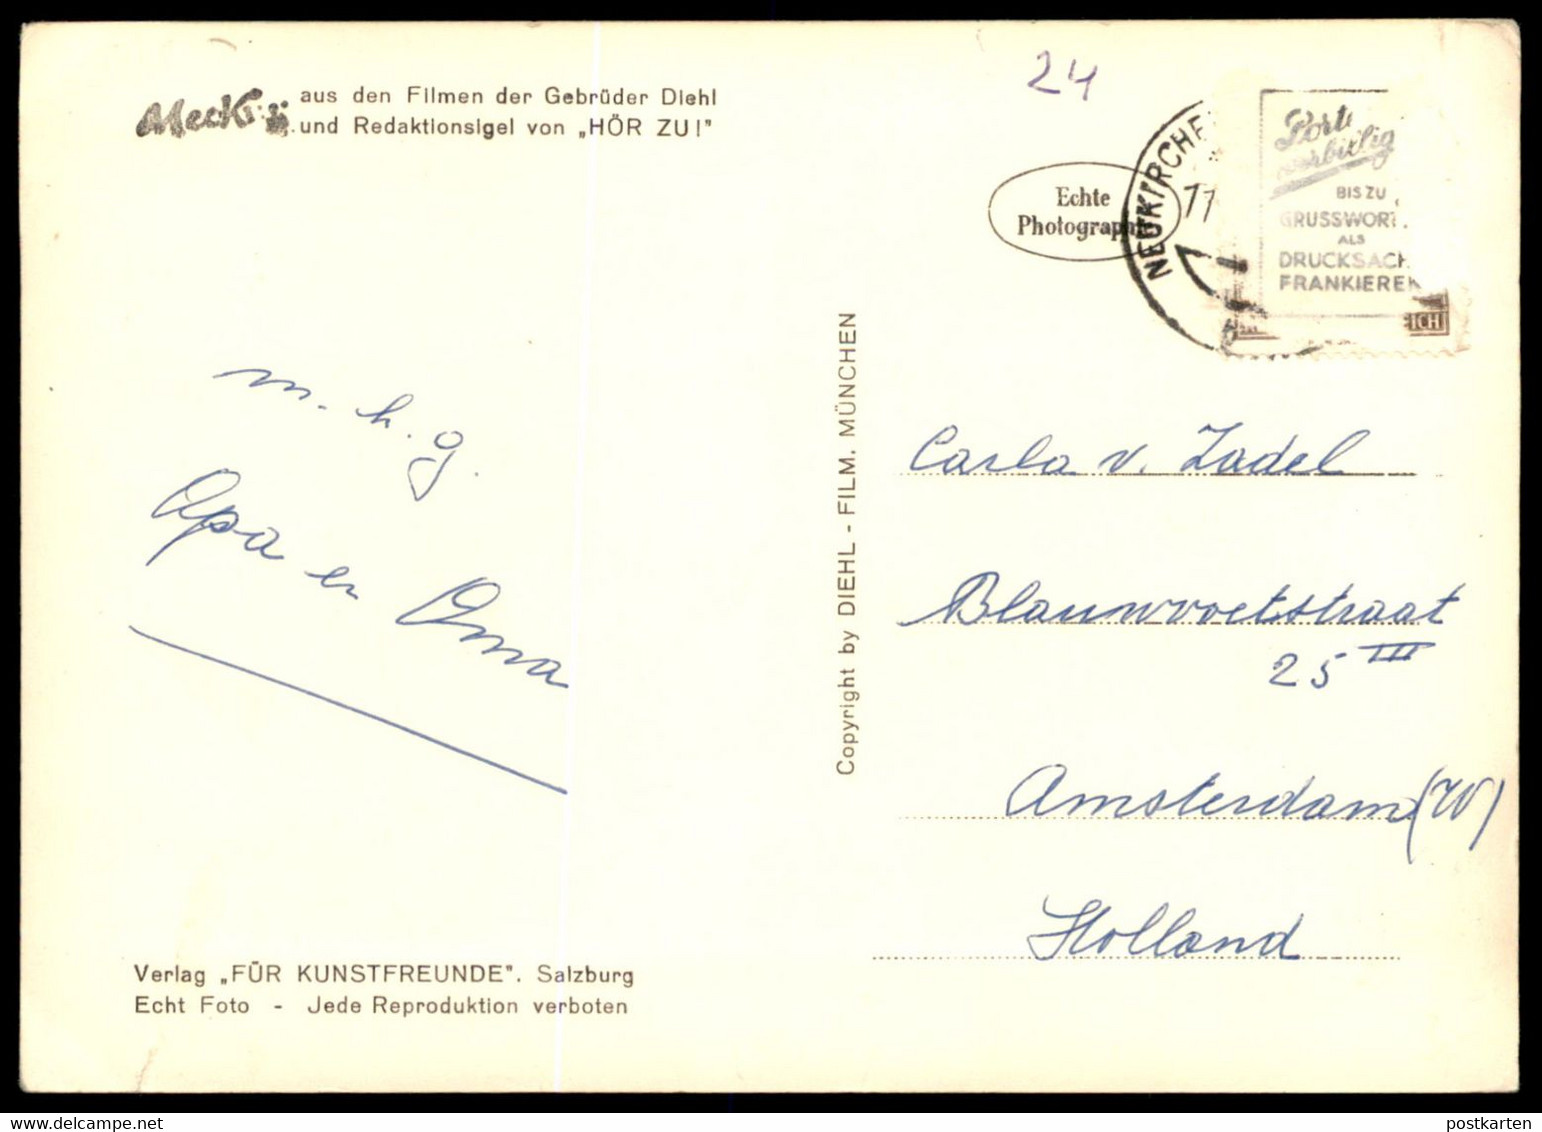 Mecki aus den Filmen der Gebrüder Diehl
und Redaktionsigel von „HÖR ZU!"
24
Echte
Photographie
NEUKIRCHE
11
BIS ZU
GRUSSWORT
ALS
DRUCKSACH
FRANKIEREN
ICH
m. h. g.
Opa en Oma
Copyright by DIEHL - FILM. MÜNCHEN
Carla v. Zadel
Blauwvoetstraat
25 III
Amsterdam (W)
Holland
Verlag „FÜR KUNSTFREUNDE". Salzburg
Echt Foto - Jede Reproduktion verboten
postkarten